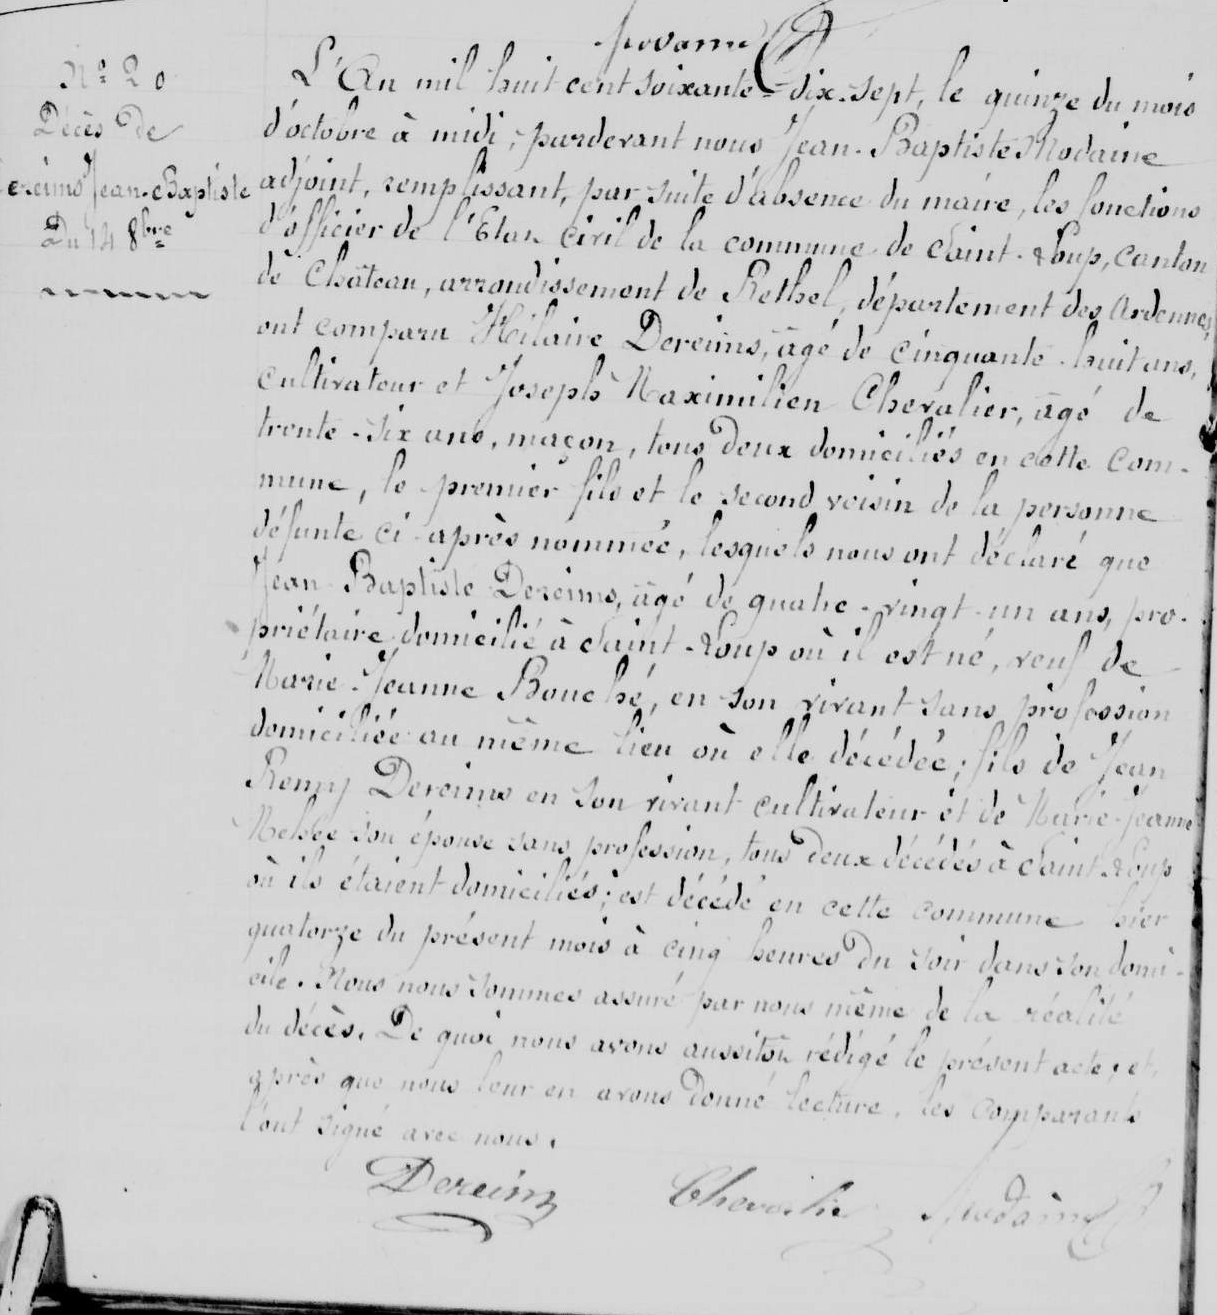 N° 20
Décès de
Dereims Jean-Baptiste
Du 14 8bre
L'An mil huit cent soixante-dix-sept, le quinze du mois
d'octobre à midi, pardevant nous Jean-Baptiste Modaine
adjoint, remplissant, par suite d'absence du maire, les fonctions
d'officier de l'Etat civil de la commune de Saint-Loup, canton
de Château, arrondissement de Rethel, département des Ardennes,
ont comparu Hilaire Dereims, âgé de cinquante-huit ans,
cultivateur et Joseph Maximilien Chevalier, âgé de
trente-six ans, maçon, tous deux domiciliés en cette com-
mune, le premier fils et le second voisin de la personne
défunte ci-après nommée, lesquels nous ont déclaré que
Jean-Baptiste Dereims, âgé de quatre-vingt-un ans, pro-
priétaire domicilié à Saint-Loup où il est né, veuf de
Marie-Jeanne Bouché, en son vivant sans profession
domiciliée au même lieu où elle décédée; fils de Jean
Remy Dereims en son vivant cultivateur et de Marie-Jeanne
son épouse sans profession, tous deux décédés à Saint-Loup
où ils étaient domiciliés; est décédé en cette commune hier
quatorze du présent mois à cinq heures du soir dans son domi-
cile. Nous nous sommes assuré par nous même de la réalité
du décès. De quoi nous avons aussitôt rédigé le présent acte, et,
après que nous leur en avons donné lecture, les comparants
l'ont signé avec nous.
Dereims Chevalier Modaine